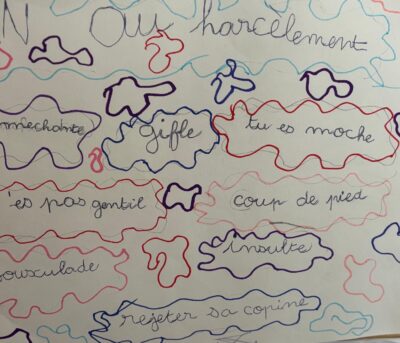 N Ou harcelement
méchante
gifle
tu es moche
'es pas gentil
coup de pied
insulte
ousculade
rejeter sa copine